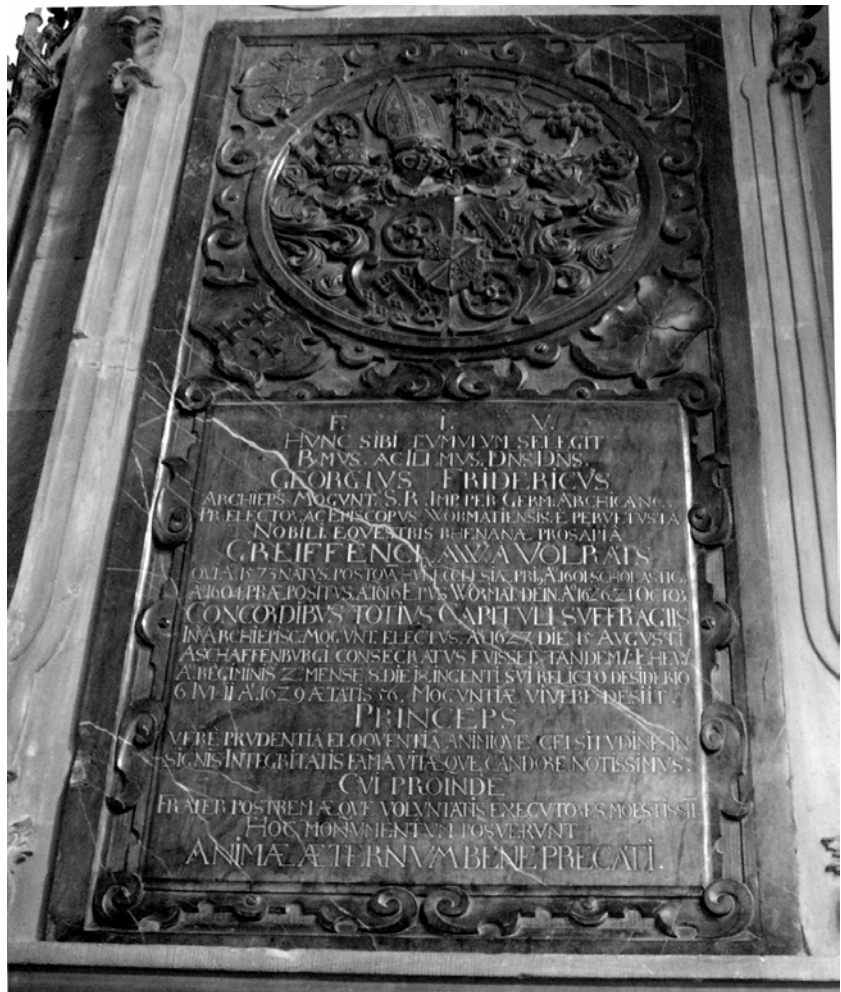 F. I. V.
HVNC SIBI TVMVLVM SELEGIT
RMVS. AC ILLMVS. DNS. DNS.
GEORGIVS FRIDERICVS
ARCHIEPS MOGVNT. S. R. IMP. PER GERM. ARCHICANC.
PR. ELECTOR, AC EPISCOPVS WORMATIENSIS. E PERVETVSTA
NOBILI EQVESTRIS RHENANÆ PROSAPIA
GREIFFENCLAW A VOLRATS
1573 NATVS. ECCLESIÆ A. 1601 SCHOLASTIC,
A 1604 PRÆPOSITVS. A. 1616 EPVS WORMAT. DEIN. A. 1626. 21 OCTOB.
CONCORDIBVS TOTIVS CAPITVLI SVFFRAGIIS
IN ARCHIEPISC. MOGVNT. ELECTVS. A. 1627. DIE 15 AVGVSTI
ASCHAFFENBVRGI CONSECRATVS FVISSET. TANDEM EHEV
A. REGIMINIS 2. MENSE 8. DIE 18. INGENTI SVI RELICTO DESIDERIO
6 IVLII A. 1629 ÆTATIS 56. MOGVNTIÆ VIVERE DESIIT.
PRINCEPS
VERE PRVDENTIA ELOQVENTIA ANIMIQVE CELSITVDINE IN
SIGNIS INTEGRITATIS FAMA VITÆQVE CANDORE NOTISSIMVS:
CVI PROINDE
FRATER POSTREMÆQVE VOLVNTATIS EXECVTORES MOESTISSII
HOC MONVMENTVM POSVERVNT
ANIMÆ ÆTERNVM BENE PRECATI.